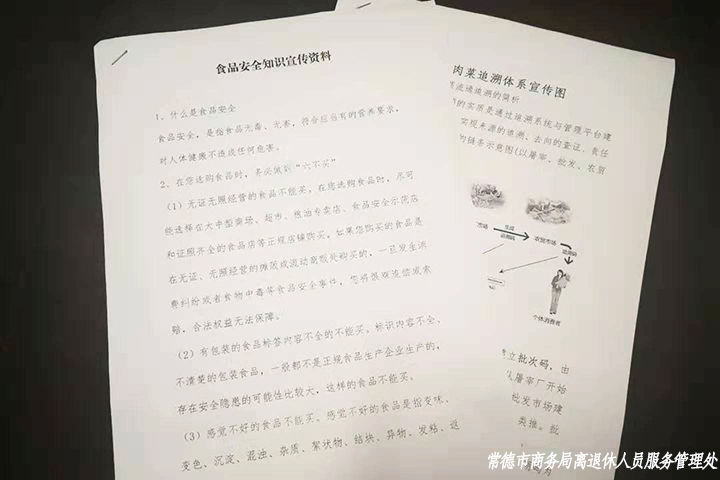 食品安全知识宣传资料
1、什么是食品安全
食品安全，是指食品无毒、无害，符合应当有的营养要求，
对人体健康不造成任何危害。
2、在您选购食品时，务必做到“六不买”
（1）无证无照经营的食品不能买。在您选购食品时，尽可
能选择在大中型商场、超市、粮油专卖店、食品安全示范店
和证照齐全的食品店等正规店铺购买。如果您购买的食品是
在无证、无照经营的摊贩或流动商贩处购买的，一旦发生消
费纠纷或者食物中毒等食品安全事件，您将很难追偿或索
赔，合法权益无法保障。
（2）有包装的食品标签内容不全的不能买。标识内容不全、
不清楚的包装食品，一般都不是正规食品生产企业生产的，
存在安全隐患的可能性比较大，这样的食品不能买。
（3）感觉不好的食品不能买。感觉不好的食品是指变味、
变色、沉淀、混浊、杂质、絮状物、结块、异物、发粘、返
肉菜追溯体系宣传图
流通追溯的简析
的实质是通过追溯系统与管理平台建
实现来源的追溯、去向的查证、责任
链条示意图(以屠宰、批发、农贸
市场
生成
追溯码
农贸市场
追溯码
个体消费者
立批次码，由
以屠宰厂开始
批发市场建
类推。批
常德市商务局离退休人员服务管理处